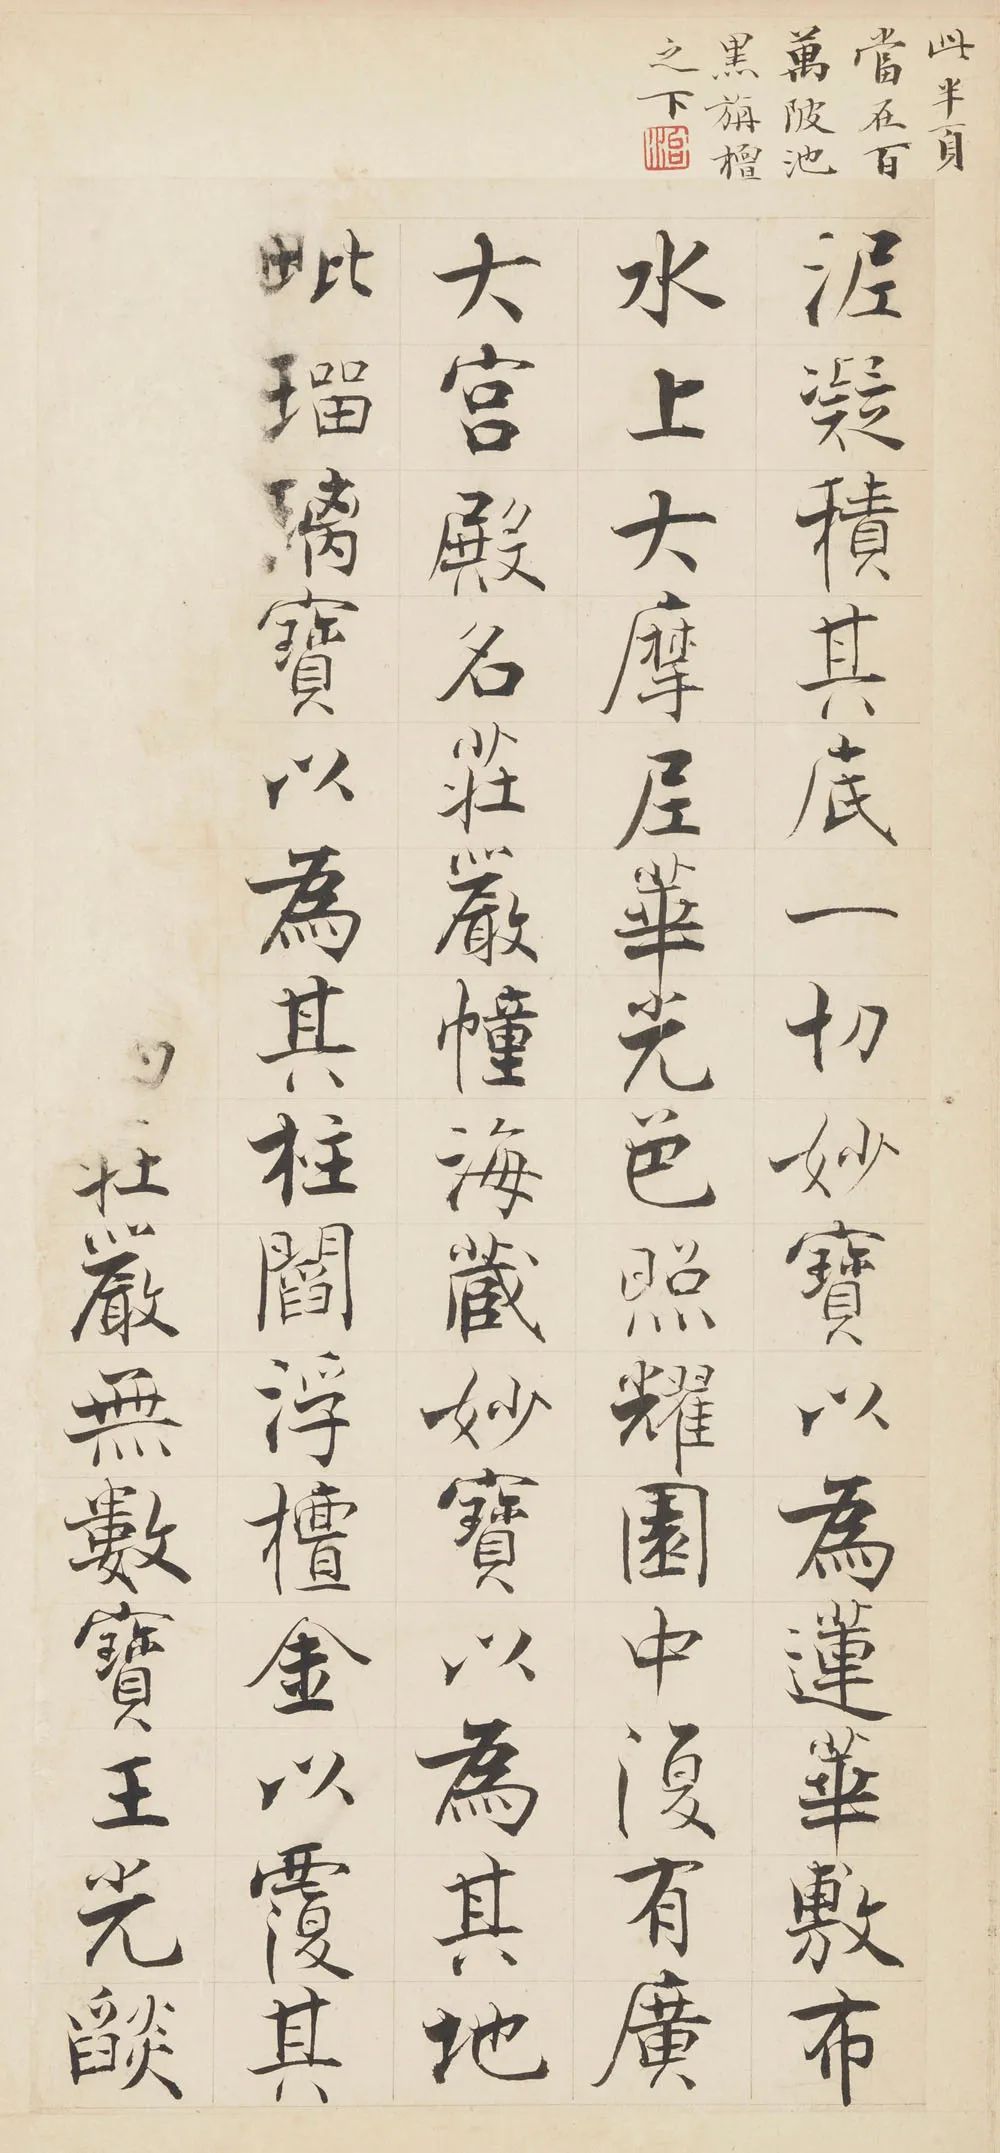 此半頁
當在百
萬陂池
黒旃檀
之下
泥凝積其底一切妙寶以為蓮華敷布
水上大摩尼華光色照耀園中復有廣
大宮殿名莊嚴幢海藏妙寶以為其地
毗瑠璃寶以為其柱閻浮檀金以覆其
莊嚴無數寶王光燄